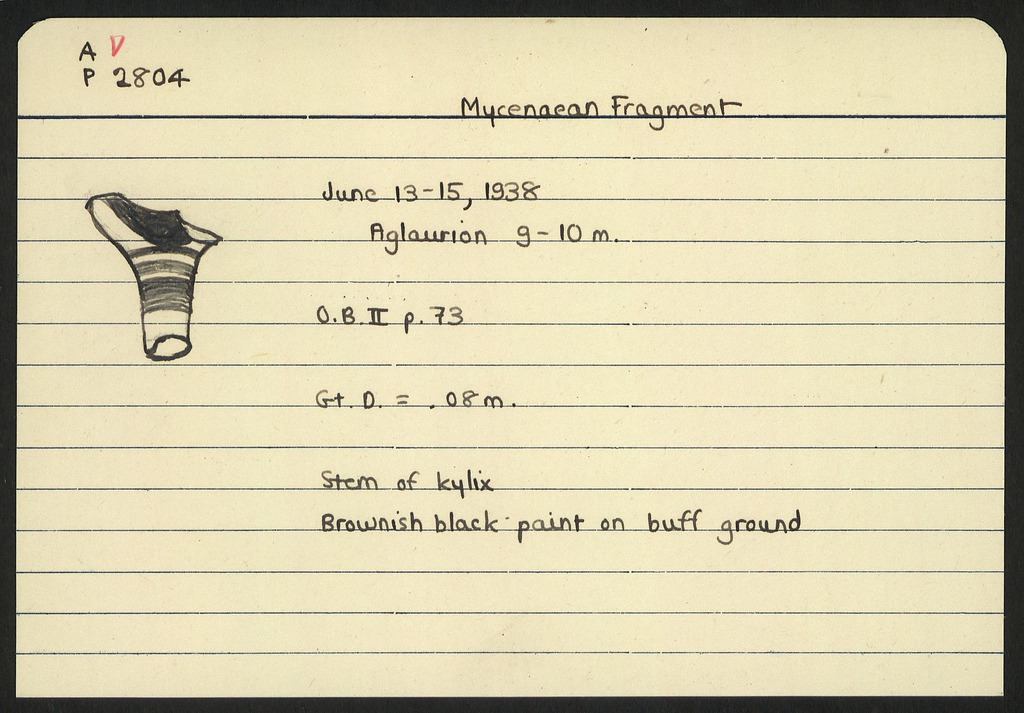 A V
P 2804
Mycenaean Fragment
June 13-15, 1938
Aglaurion 9-10 m.
O.B. II p. 73
Gt. D. = .08 m.
Stem of kylix
Brownish black paint on buff ground